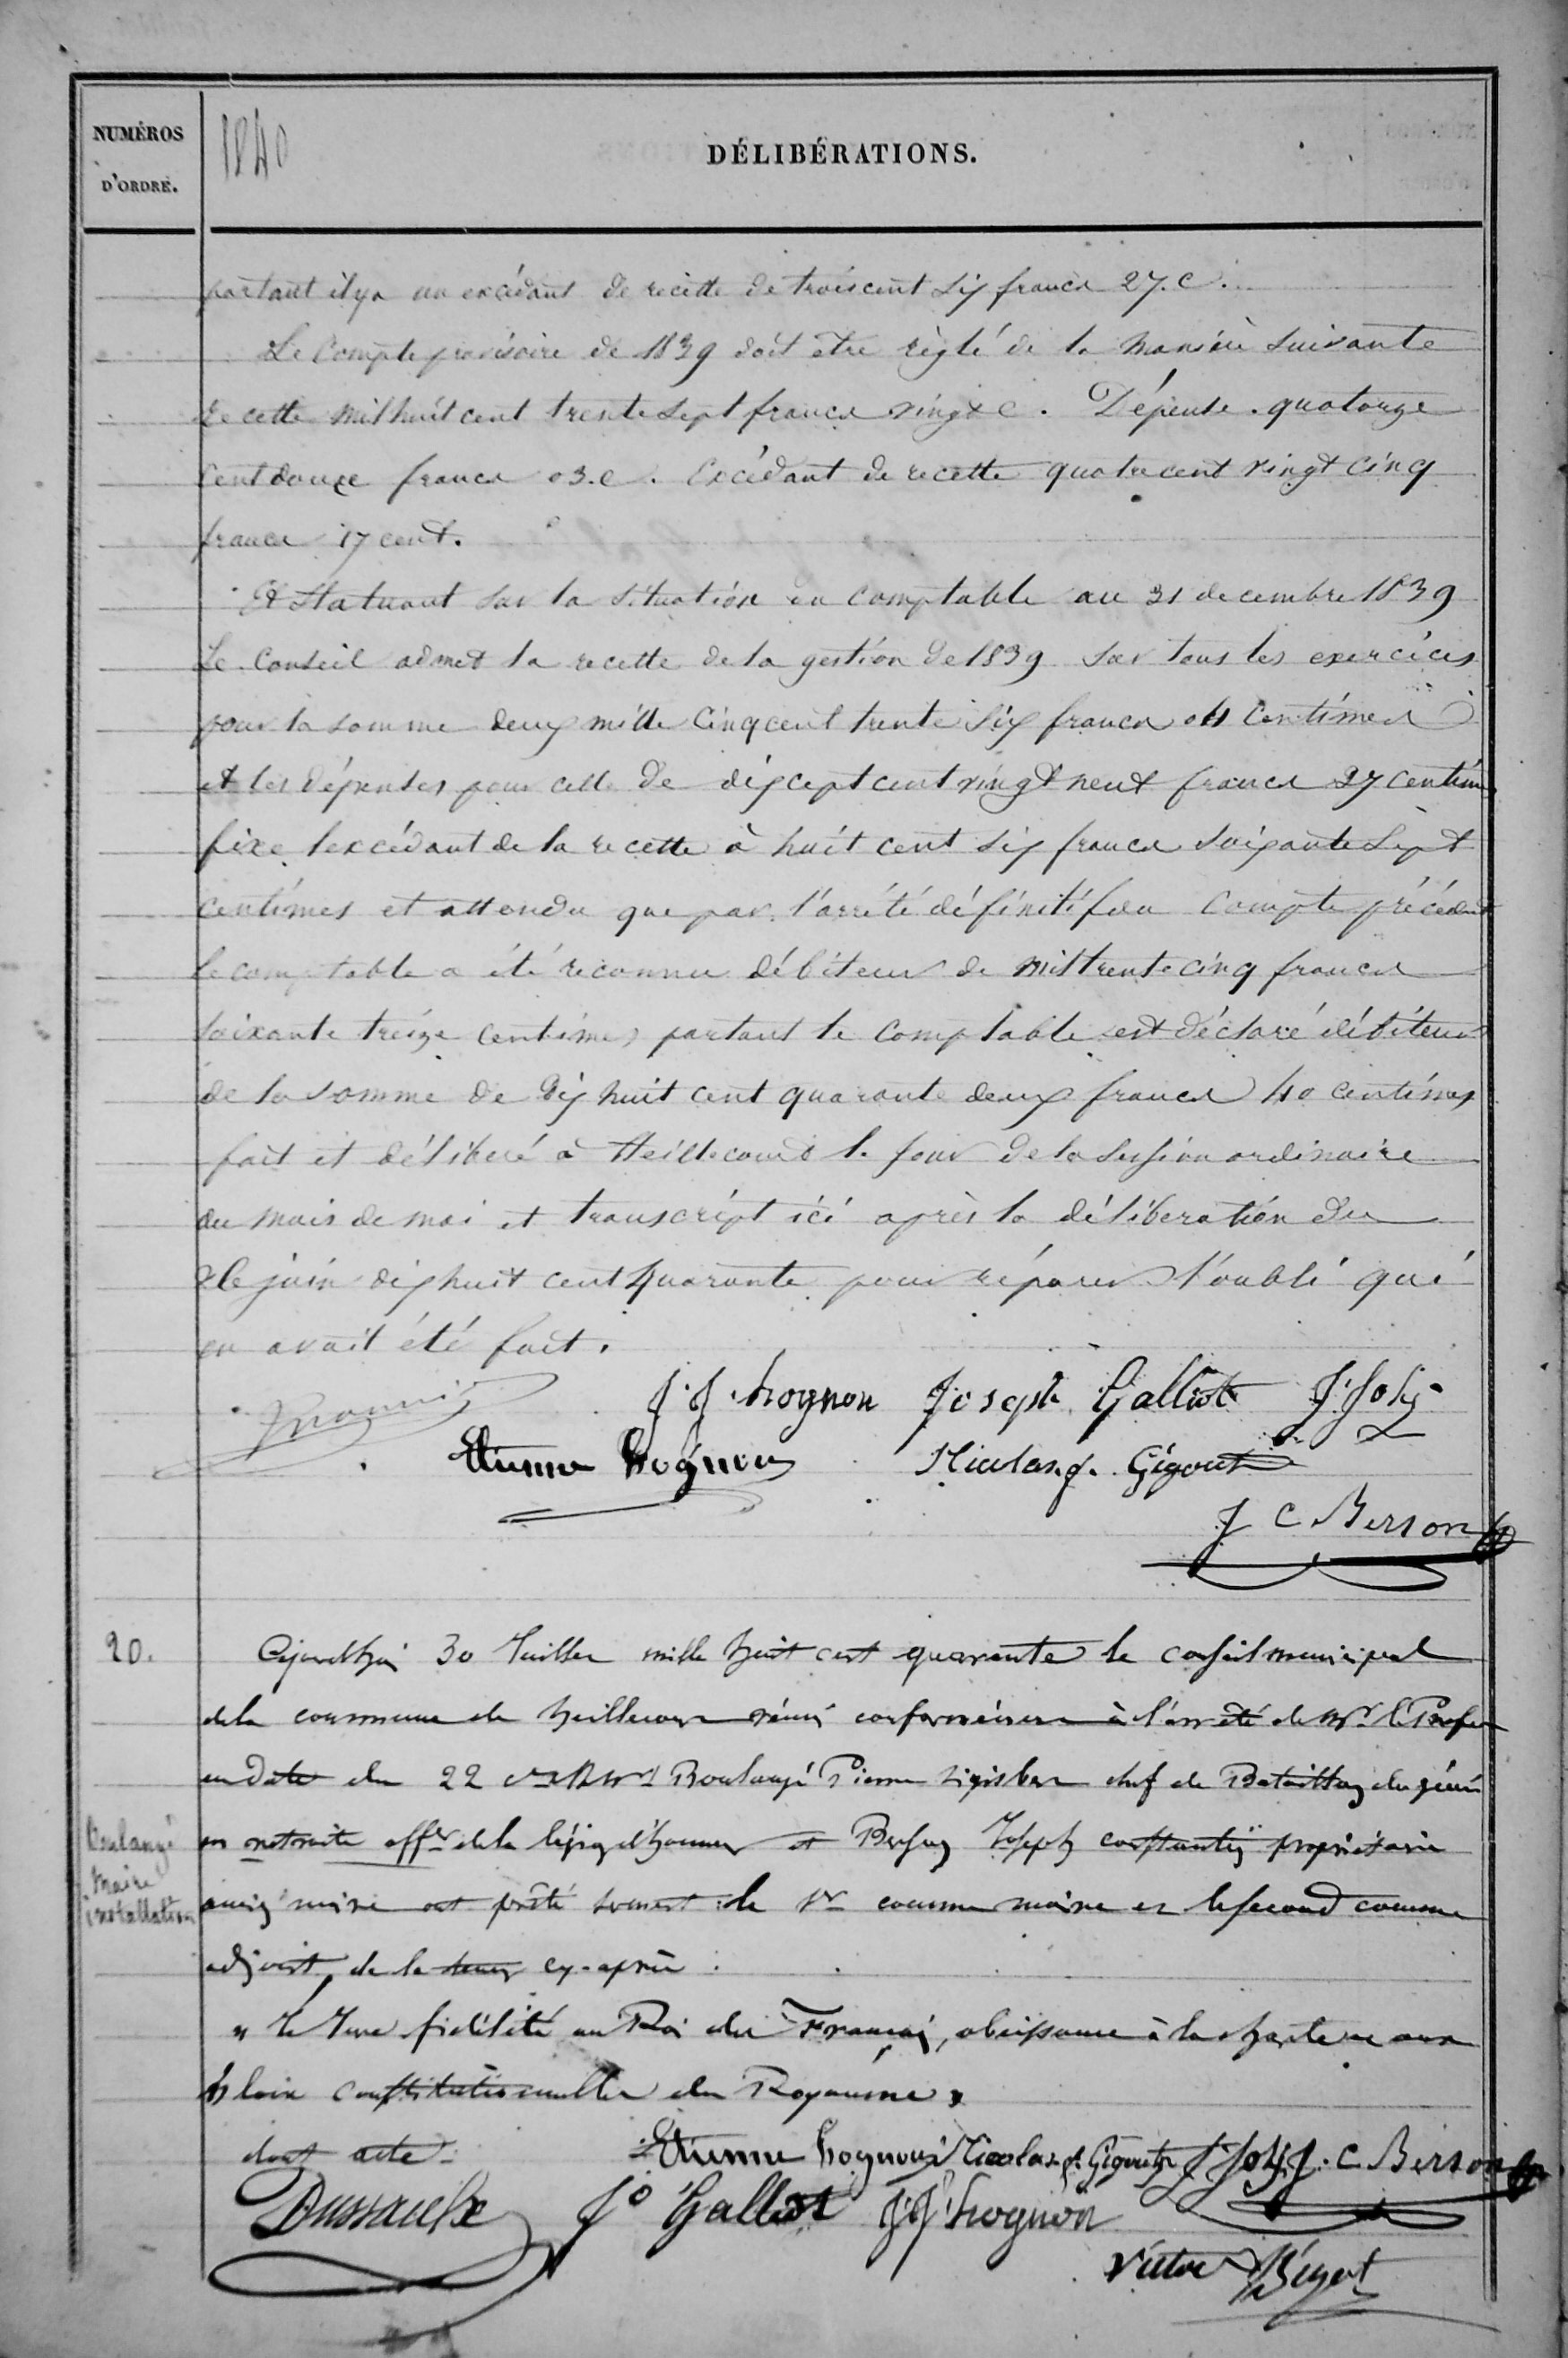 NUMÉROS
D'ORDRE.
1840
DÉLIBÉRATIONS.
partant il y a un excédant de recette de trois cent six francs 27.c.
Le Compte provisoire de 1839 doit être règlé de la manière suivante
Recette mil huit cent trente sept francs vingt c. Dépense. quatorze
cent douze francs 03.c. Excédant de recette quatre cent vingt cinq
francs 17 cent.
Et Statuant sur la situation du comptable au 31 decembre 1839
Le Conseil admet la recette de la gestion de 1839 sur tous les exercices
pour la somme deux mille cinq cent trente six francs 04 centimes
et les dépenses pour celle de dix cept cent vingt neuf francs 37 centimes
fixe l'excédant de la recette à huit cent six francs soixante sept
centimes et attendu que par l'arrêté définitif du compte précédent
le comptable a été reconnu débiteur de mil trente cinq francs
soixante treize centimes, partant le comptable est déclaré débiteur
de la somme de dix huit cent quarante deux francs 40 centimes
fait et délibéré à Heillecourt le jour de la session ordinaire
du mois de mai et transcript ici après la délibération du
juin dix huit cent quarante pour réparer l'oubli qui
en avait été fait.
J J hognon Joseph Galliot J. Joly
Etienne hognon Nicolas. f. Gégout
J C Berson
20.
Cejourdhui 30 Juillet mille huit cent quarante le conseil municipal
de la commune de heillecourt réuni conformément à l'arrêté de Mr. le Préfet
en date du 22 Boulangé Pierre Sigisbert chef de Bataillon du génie
en retraite offer. de la légion d'honneur et Berson Joseph constantin propriétaire
ancien maire ont prêté serment le 1er comme maire et le second comme
adjoint, de la teneur cy-après :
Boulangé
Maire
installation
" Je Jure fidélité au Roi des Français, obéissance à la charte et aux
" loix constitutionnelles du Royaume "
dont acte.
Etienne hognon Nicolas. f. Gégout J. Joly J. C Berson
Dussaulx Jo Galliot J J hognon
Victor Bégot